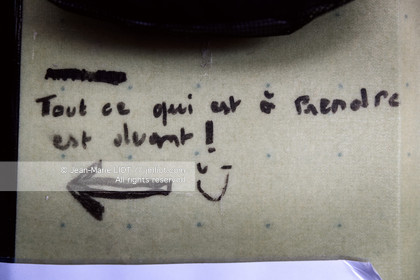 Tout ce qui est à prendre
est devant !
© Jean-Marie LIOT
All rights reserved